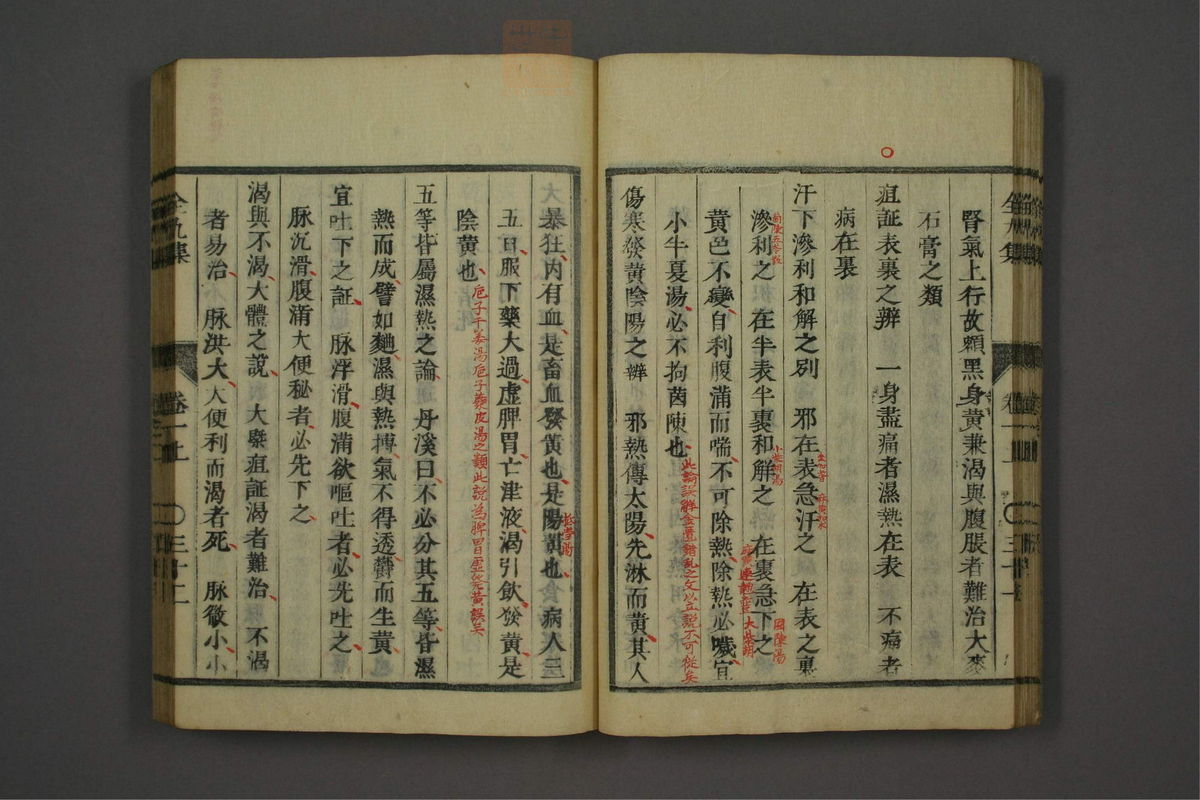 腎氣上行故額黑身黃兼渴與腹脹者難治大麥
石膏之類
疸証表裏之辨 一身盡痛者濕熱在表 不痛者
病在裏
汗下滲利和解之別 邪在表急汗之 在表之裏
滲利之 在半表半裏和解之 在裏急下之
黃色不變自利腹滿而喘不可除熱除熱必噦宜
小半夏湯必不拘茵陳也
此論誤解金匱錯乱之文以立説不可從矣
傷寒發黃陰陽之辨 邪熱傳太陽先淋而黃其人
大暴狂內有血是畜血發黃也是陽黃也 病人三
五日服下藥大過虛脾胃亡津液渴引飲發黃是
陰黃也
五等皆屬濕熱之論 丹溪曰不必分其五等皆濕
熱而成譬如麯濕與熱搏氣不得透欝而生黃
宜吐下之証 脉浮滑腹滿欲嘔吐者必先吐之
脉沉滑腹滿大便秘者必先下之
渴與不渴大體之說 大槩疸証渴者難治 不渴
者易治 脉洪大大便利而渴者死 脉微小小
全九集
卷一上
三十二